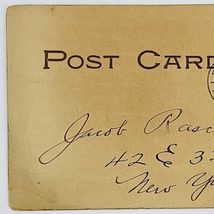 POST CARD
Jacob Rasc
42 E 3
New Y